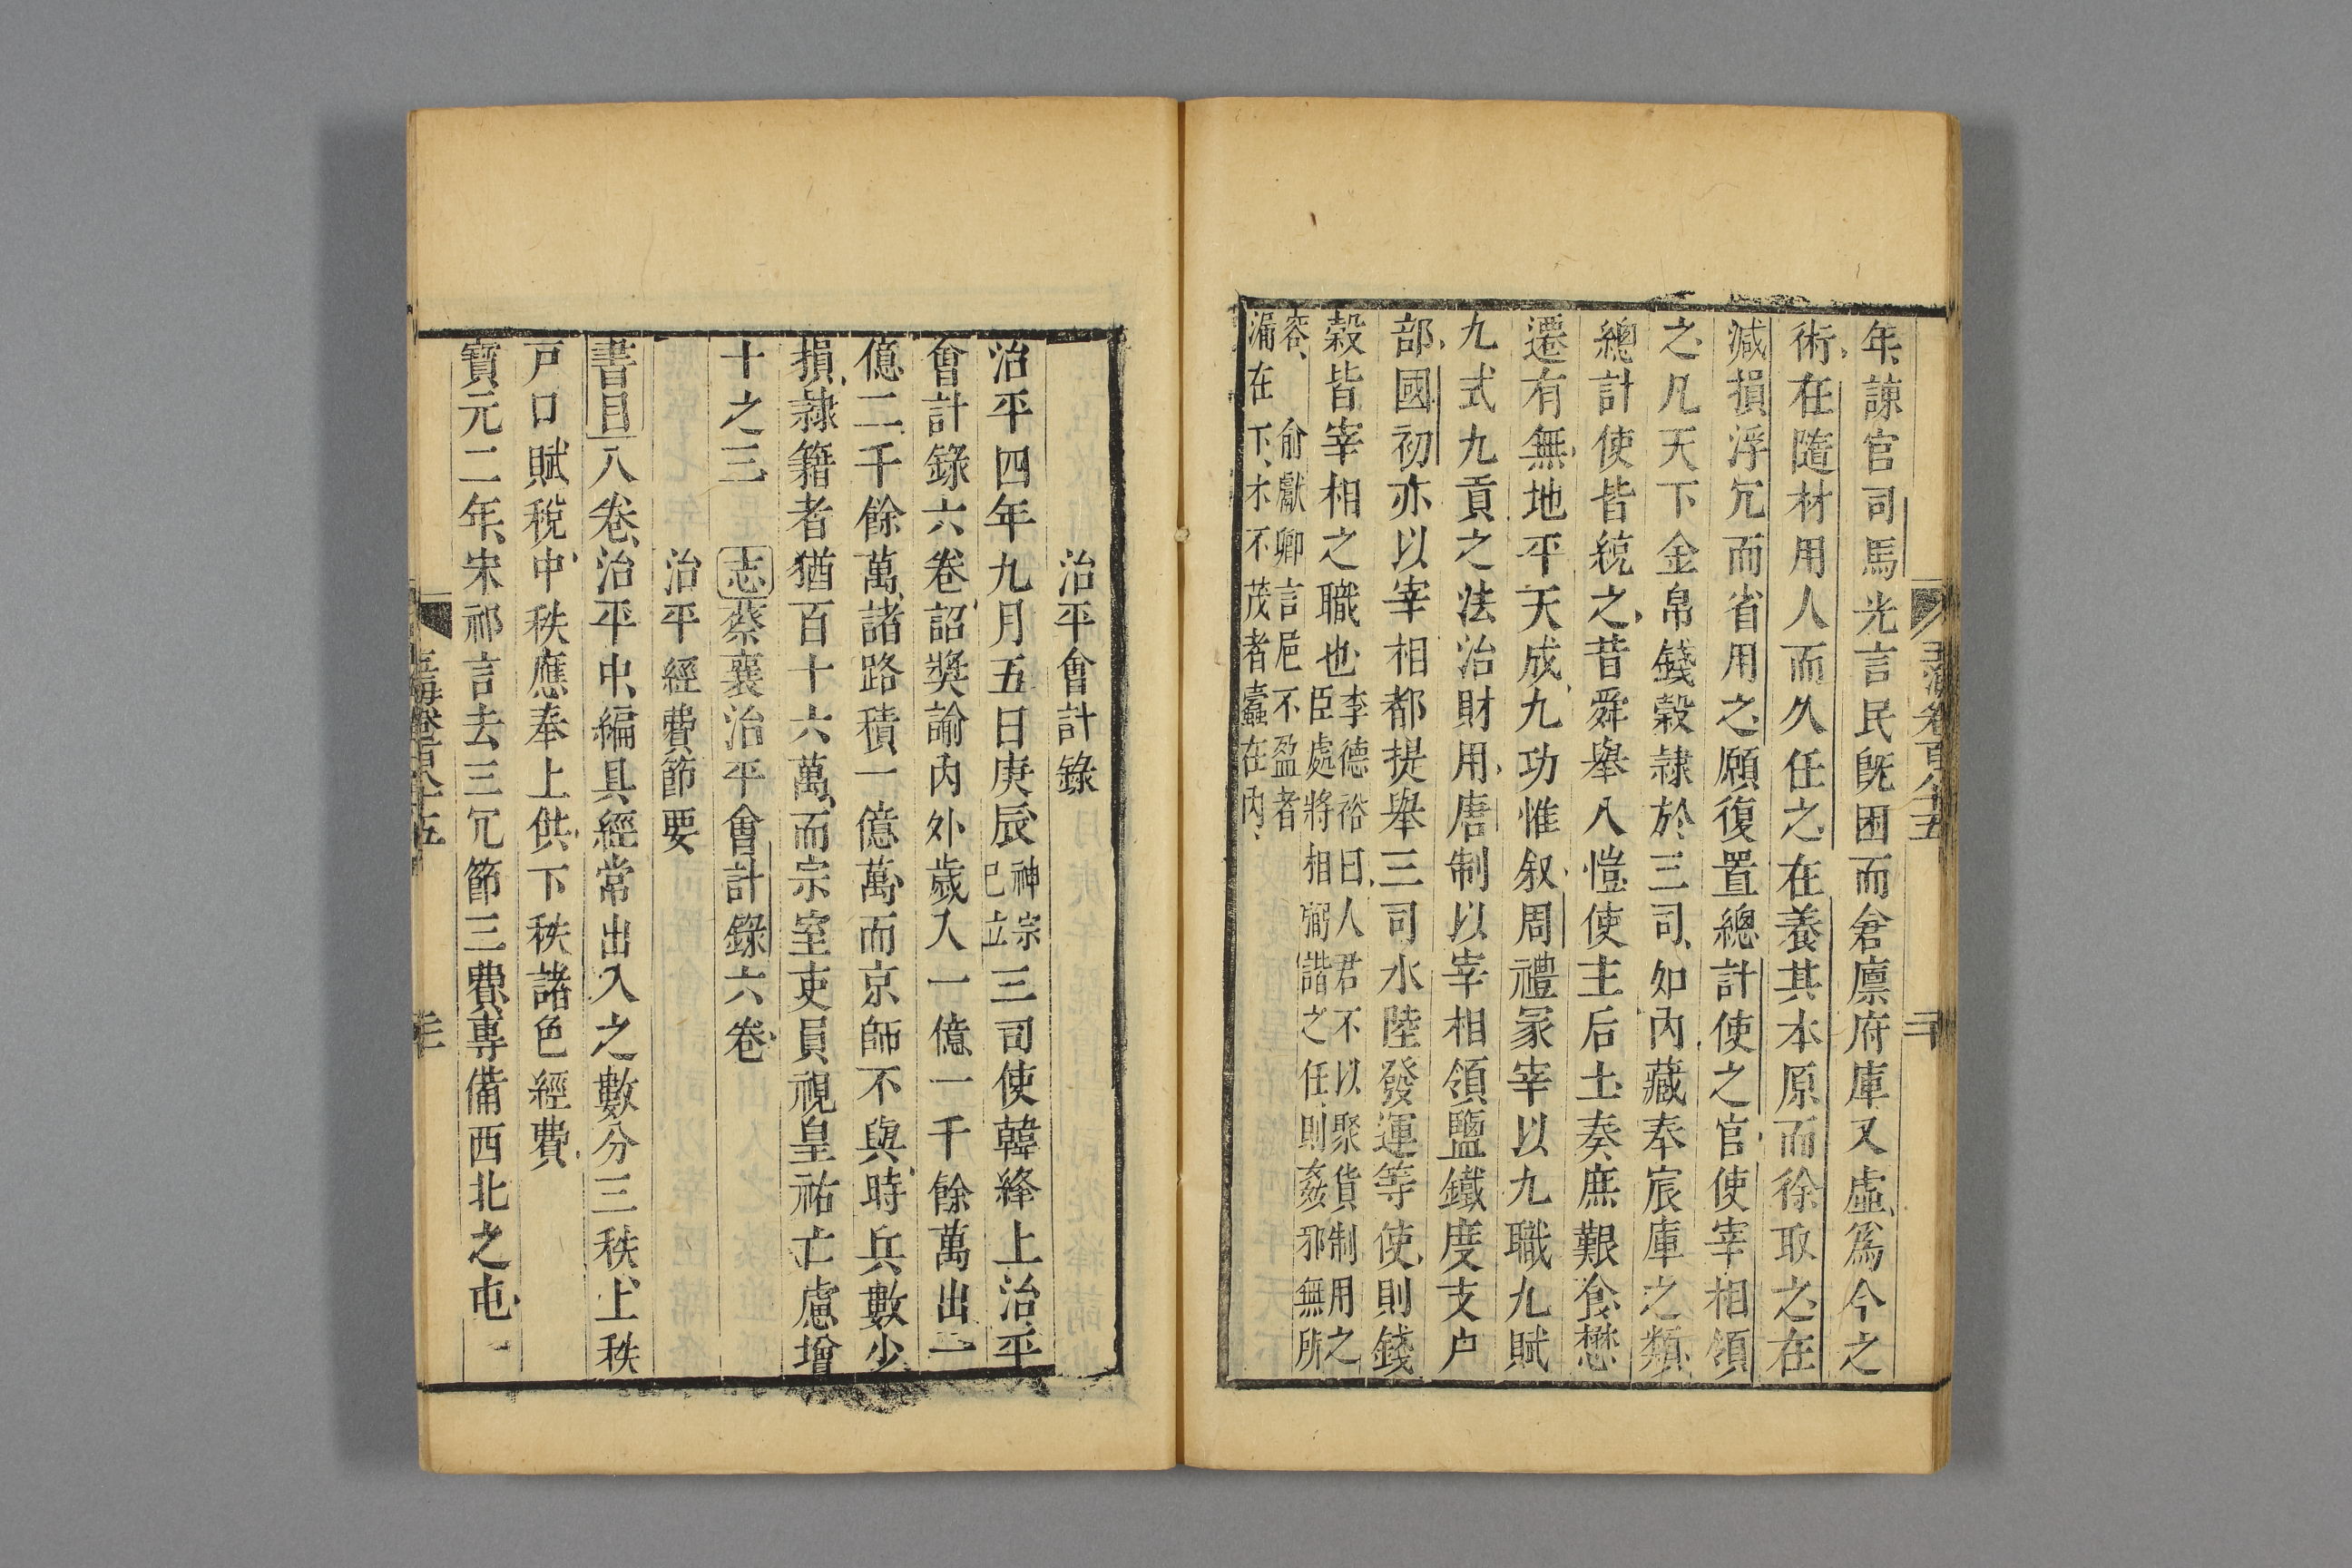 年諫官司馬光言民既困而倉廩府庫又虛爲今之
術在隨材用人而久任之在養其本原而徐取之在
減損浮冗而省用之願復置總計使之官使宰相領
之凡天下金帛錢穀隷於三司如內藏奉宸庫之類
總計使皆統之昔舜舉八愷使主后土奏庶艱食懋
遷有無地平天成九功惟叙周禮冢宰以九職九賦
九式九貢之法治財用唐制以宰相領鹽鐵度支户
部國初亦以宰相都提舉三司水陸發運等使則錢
穀皆宰相之職也李德裕曰人君不以聚貨制用之
臣處將相弼諧之任則姦邪無所
容 俞獻卿言巵不盈者
漏在下木不茂者蠹在內
治平會計錄
治平四年九月五日庚辰神宗
已立三司使韓絳上治平
會計錄六卷詔奬諭內外歲入一億一千餘萬出一
億二千餘萬諸路積一億萬而京師不與時兵數少
損隷籍者猶百十六萬而宗室吏員視皇祐亡慮增
十之三 志蔡襄治平會計錄六卷
治平經費節要
書目八卷治平中編具經常出入之數分三秩上秩
戸口賦稅中秩應奉上供下秩諸色經費
寶元二年宋祁言去三冗節三費專備西北之屯
玉海卷百八十五